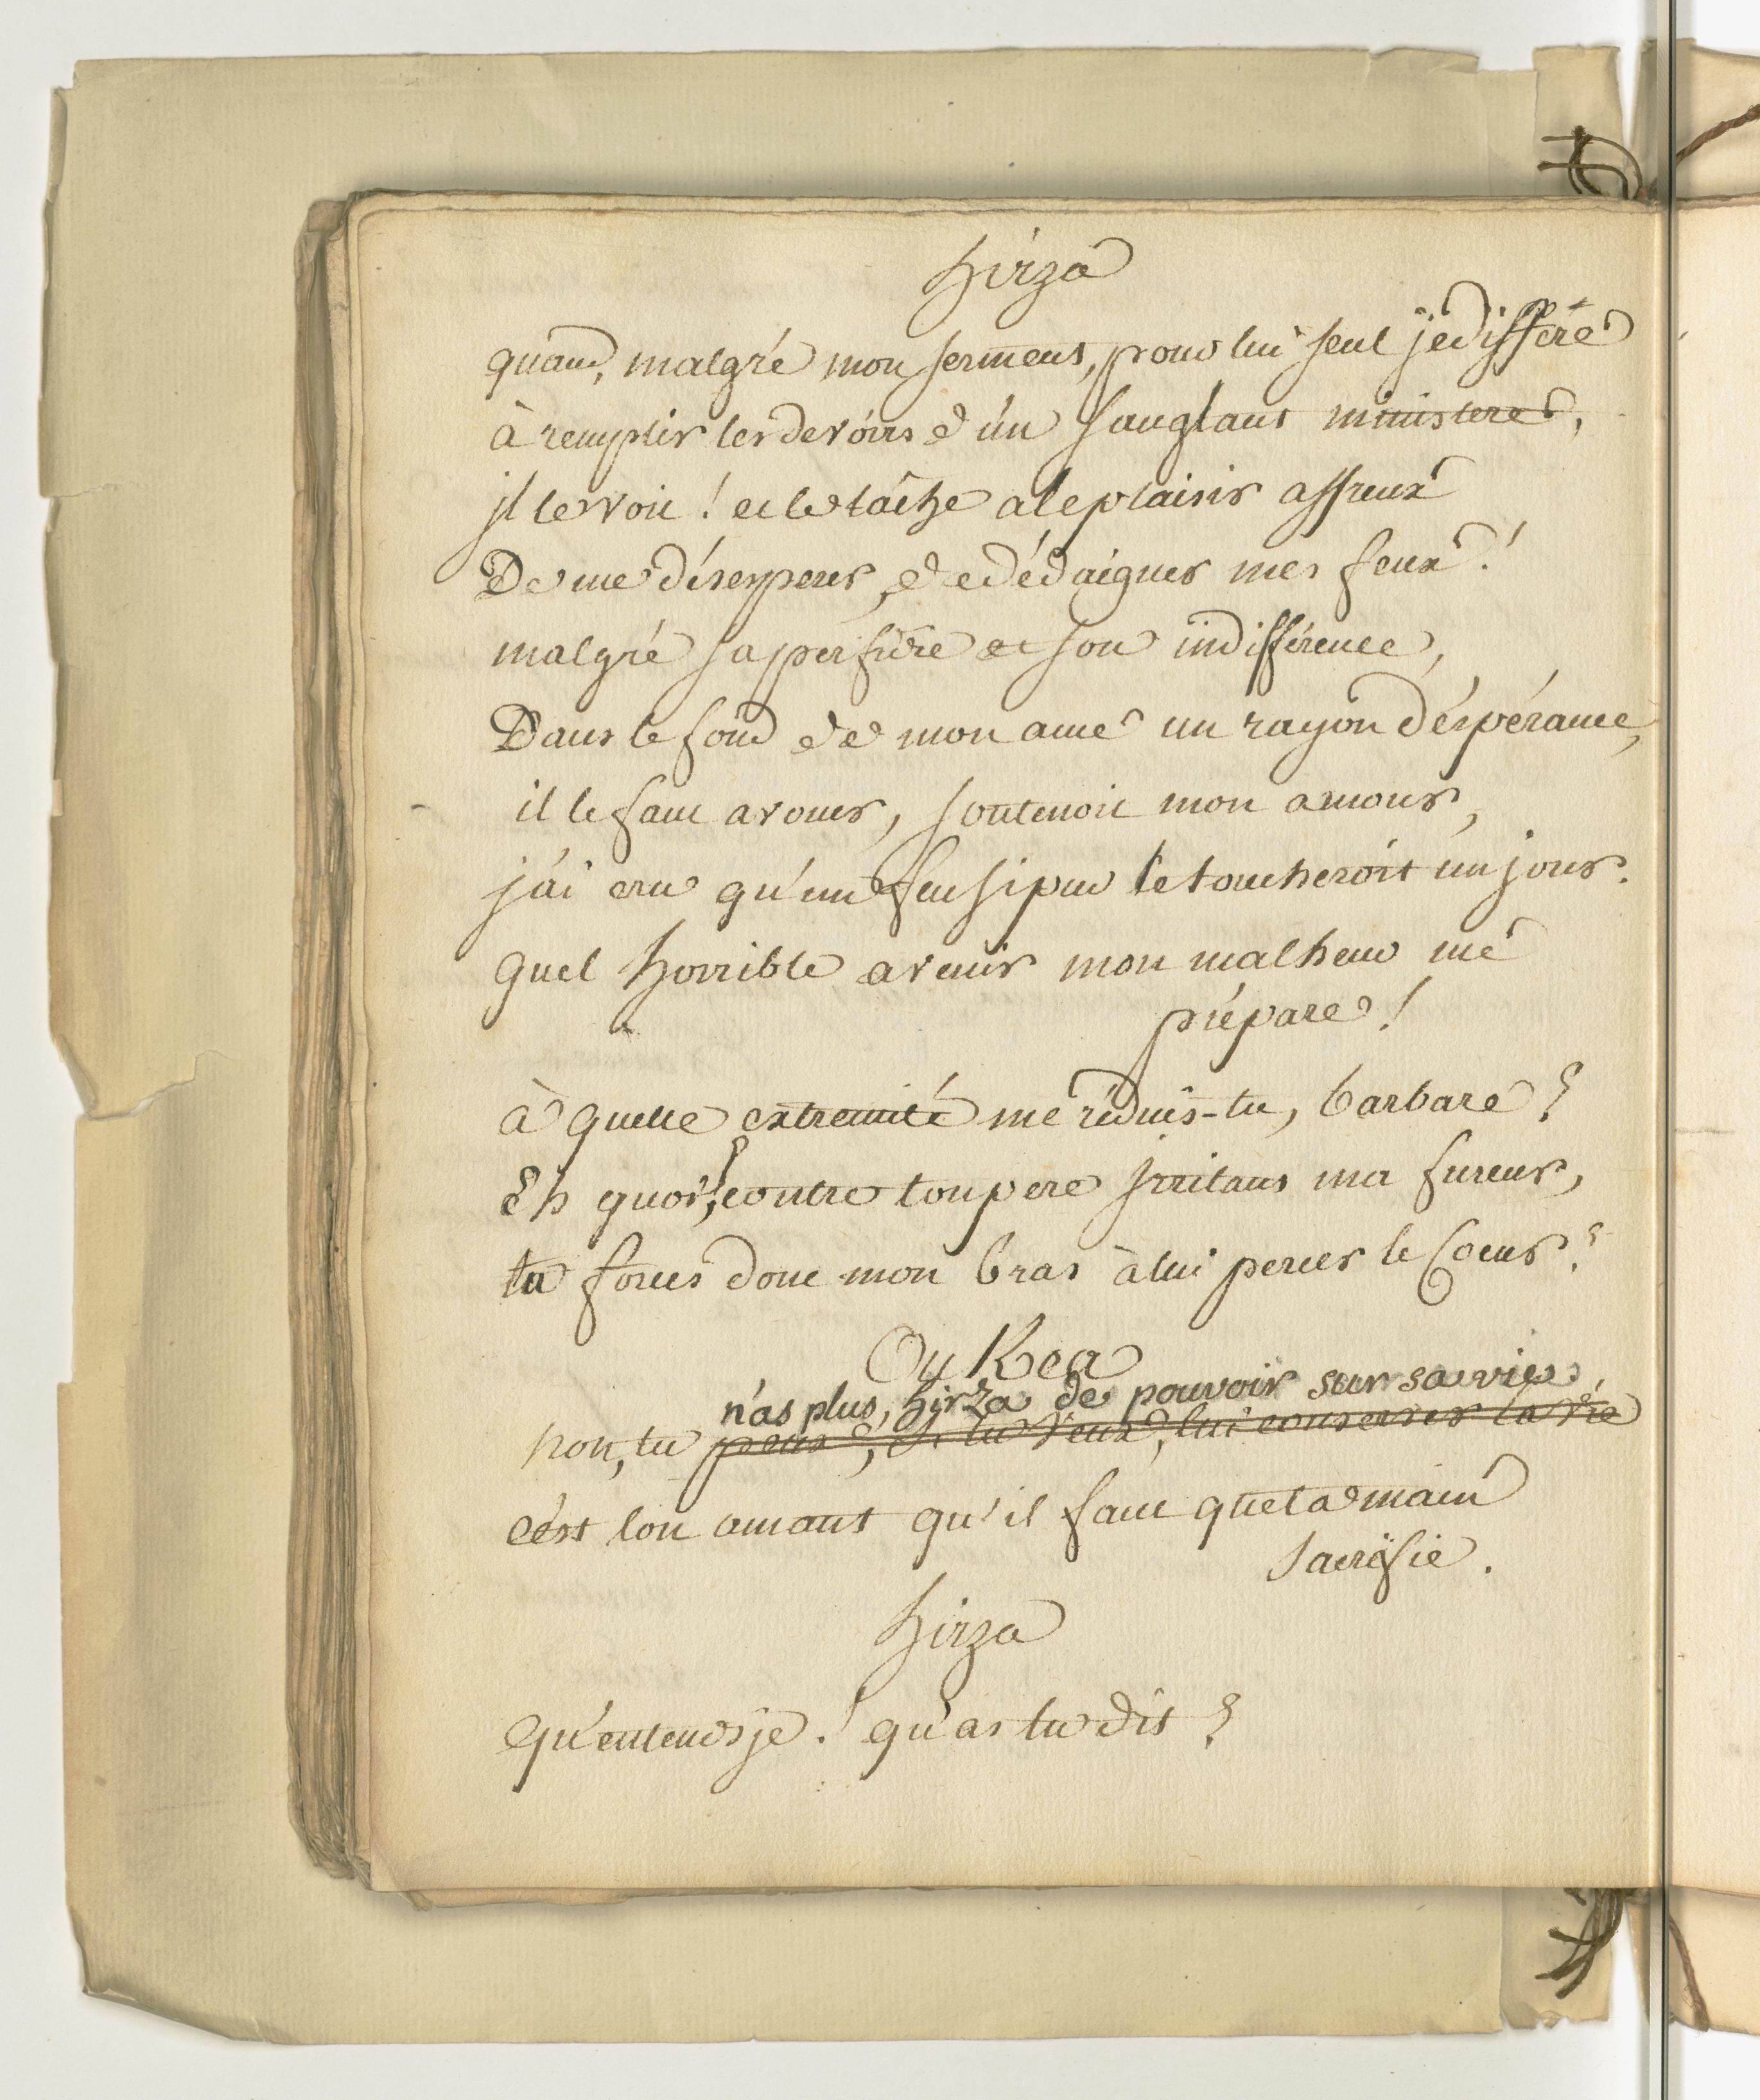 hirza
quand, malgré mon serment, pour lui seul je différe
à remplir les devoirs d'un sanglant ministere,
il le voit ! et le lâche a le plaisir affreux
De me désesperer, de dédaigner mes feux !
malgré sa perfidie et son indifférence,
Dans le fond de mon ame un rayon d'éspérance,
il le faut avouer, soutenoit mon amour,
j'ai cru qu'un feu si pur le toucheroit un jour.
quel horrible avenir mon malheur me
prépare !
à quelle extremité me réduis-tu, barbare ?
Eh quoi, contre ton pere irritant ma fureur,
tu forces donc mon bras à lui percer le Coeur ?
Ou Kea
n'as plus, hirza de pouvoir sur sa vie,
non, tu peux, si tu veux, lui conserver la vie
c'est ton amant qu'il faut que ta main
sacrifie.
hirza
qu'entends je ! qu'as tu dit ?